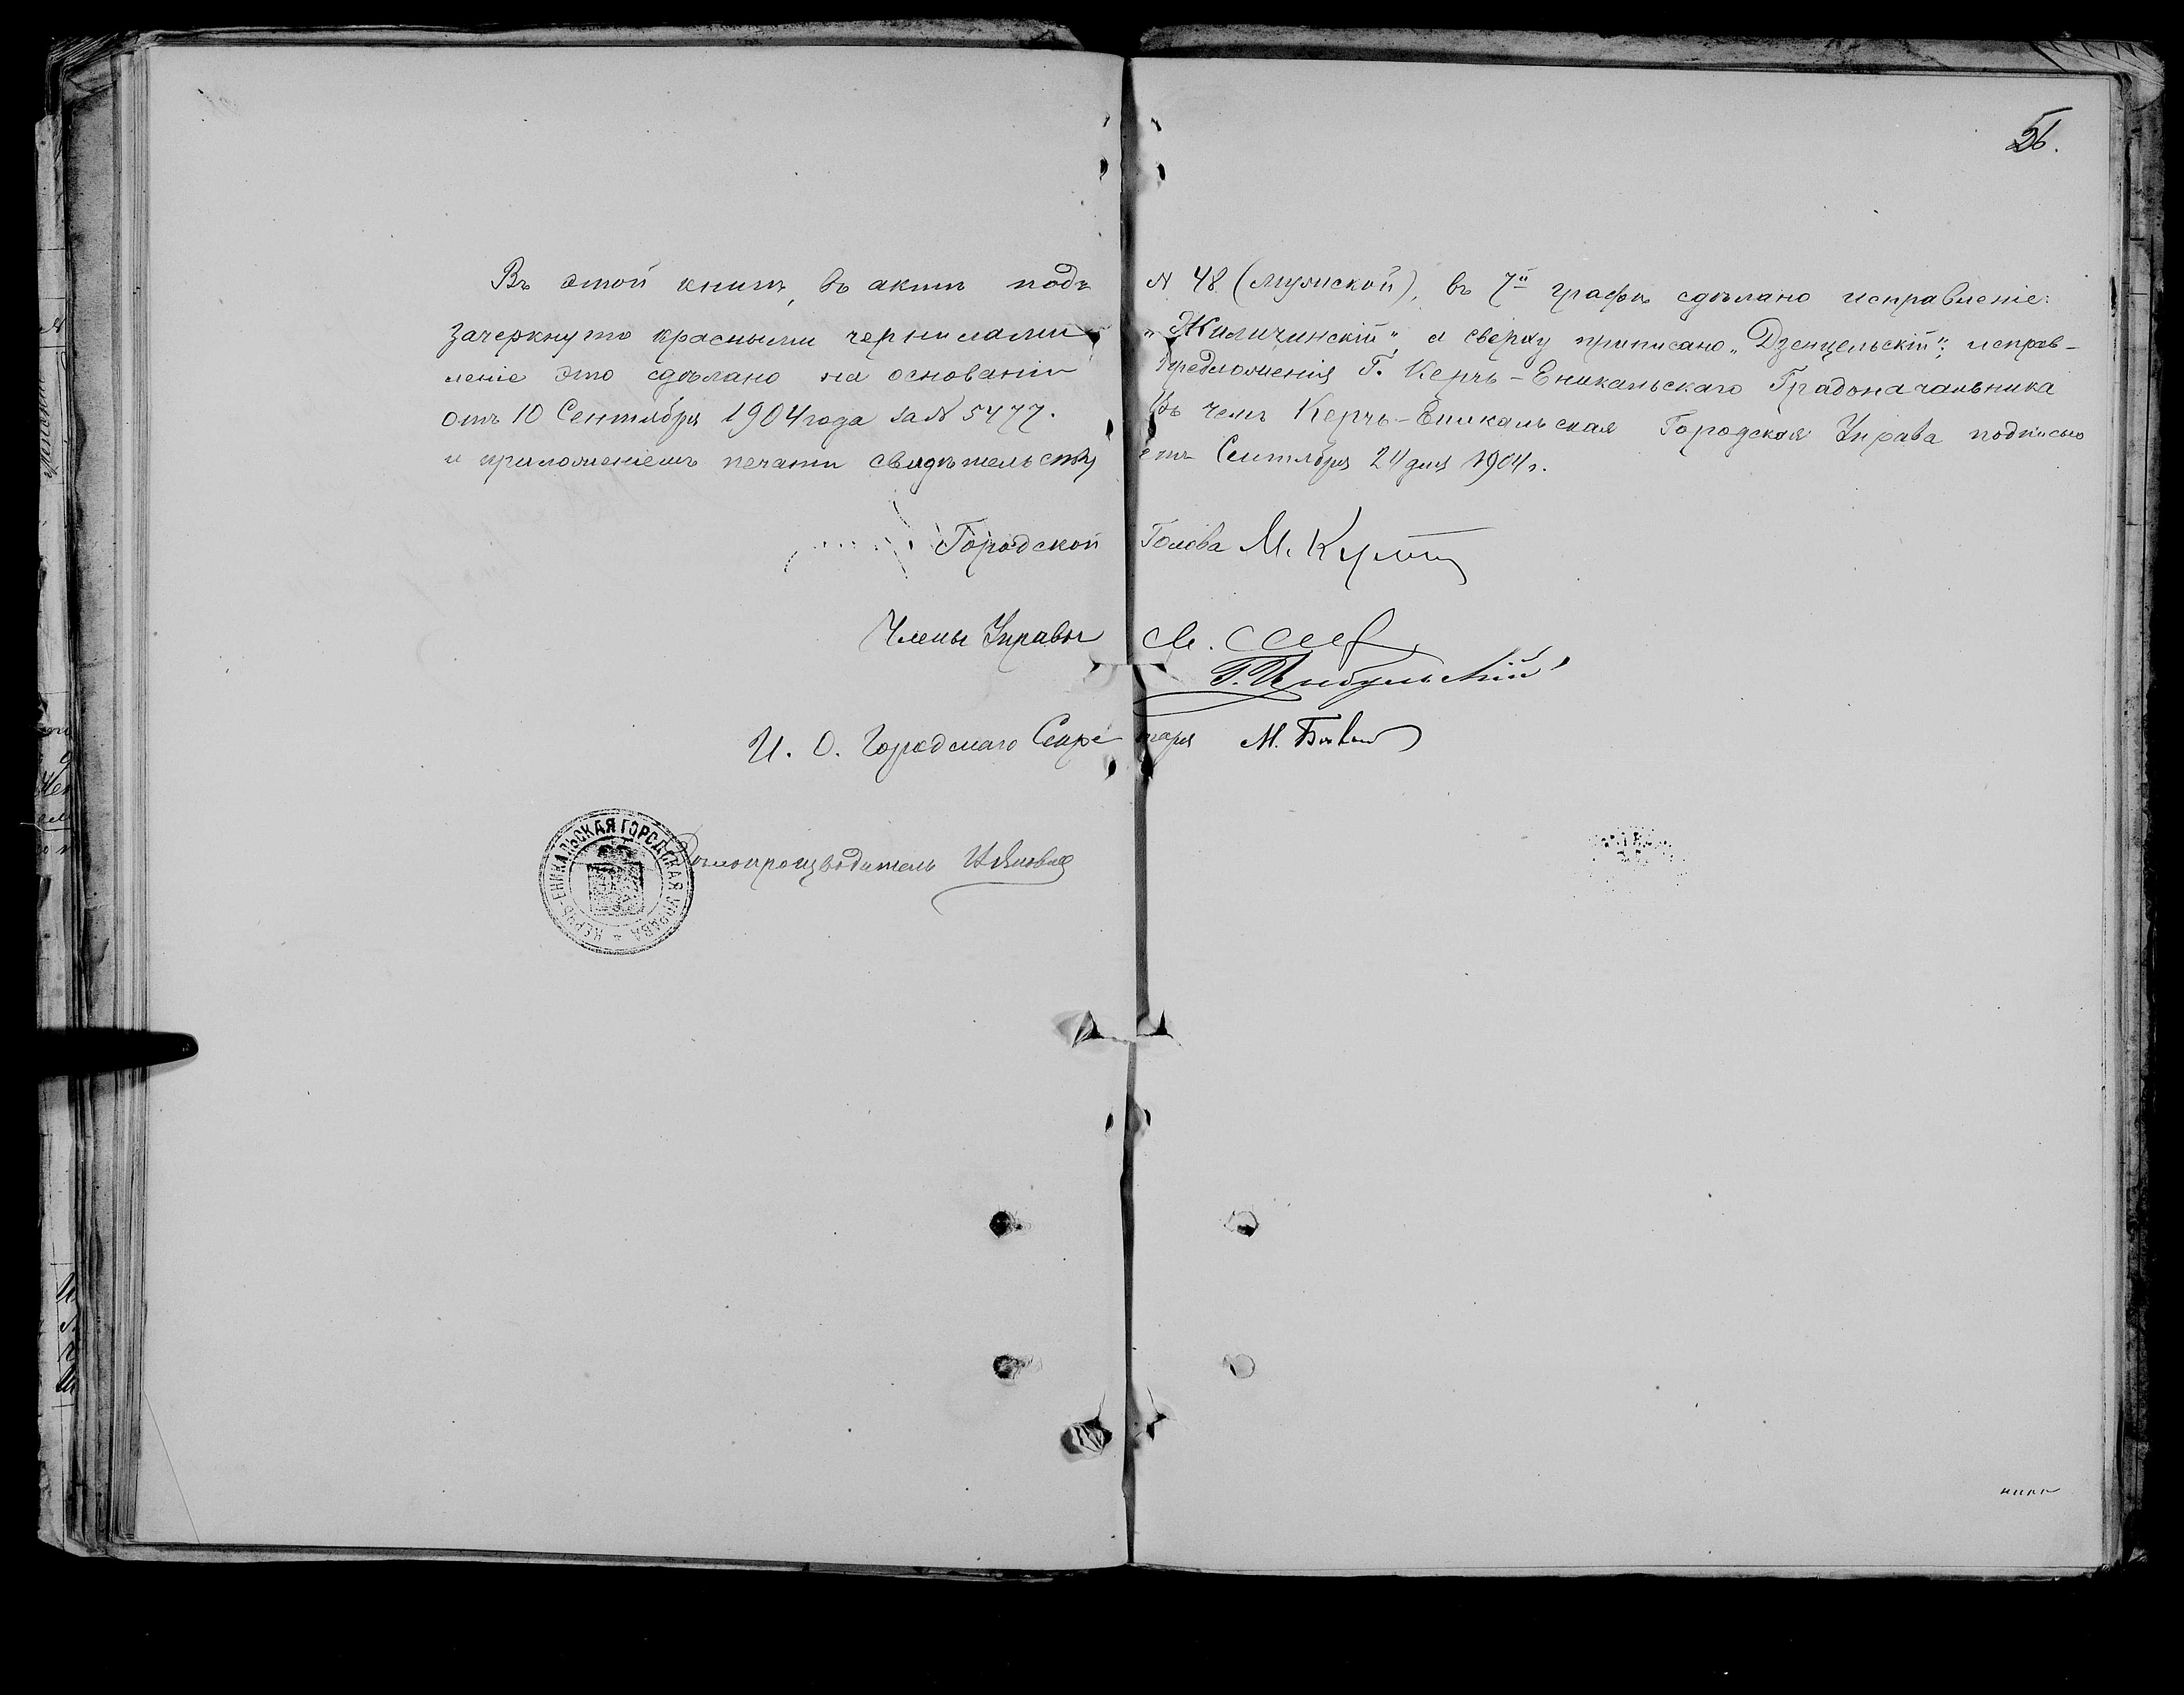 56.
Въ этой книгѣ, въ актѣ подъ № 48 (мужской), въ 7й графѣ сдѣлано исправленіе:
зачеркнуто красными чернилами „Жиличинскій“ а сверху приписано „Дзенцельскій“; исправ-
леніе это сдѣлано на основаніи предложенія Г. Керчь-Еникальскаго Градоначальника
отъ 10 Сентября 1904 года за № 5477. Въ чемъ Керчь-Еникальская Городская Управа подписью
и приложеніемъ печати свидѣтельствуетъ Сентября 24 дня 1904 г.
Городской Голова М.
Члены Управы
Г. Цыбульскій
И. О. Городскаго Секретаря М.
Дѣлопроизводитель
КЕРЧЬ-ЕНИКАЛЬСКАЯ ГОРОДСКАЯ УПРАВА